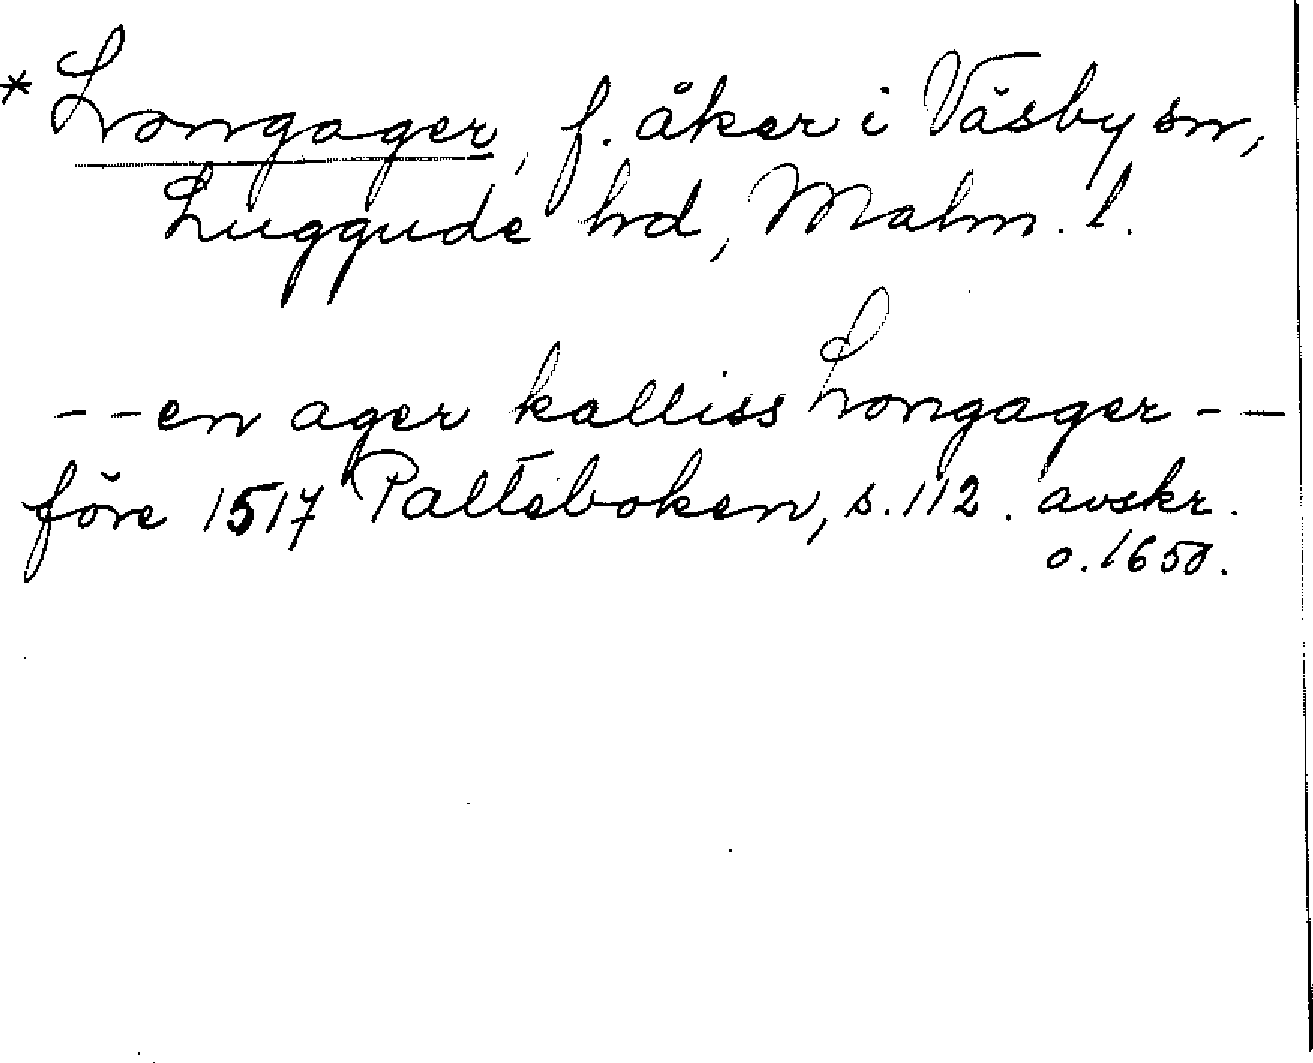 * Longager, f. åker i Väsby sn,
Luggude hd, Malm. l.
- - en ager kalliss Longager - -
före 1517 Palteboken, s. 112. avskr.
o. 1650.